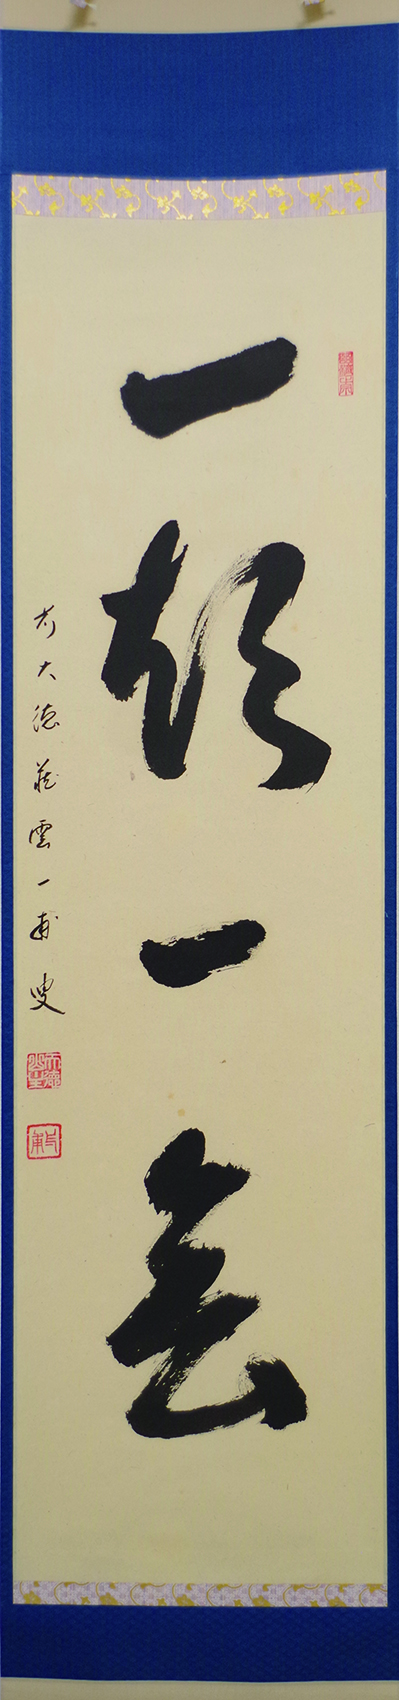 一期一会
前大徳 藏雲一甫叟